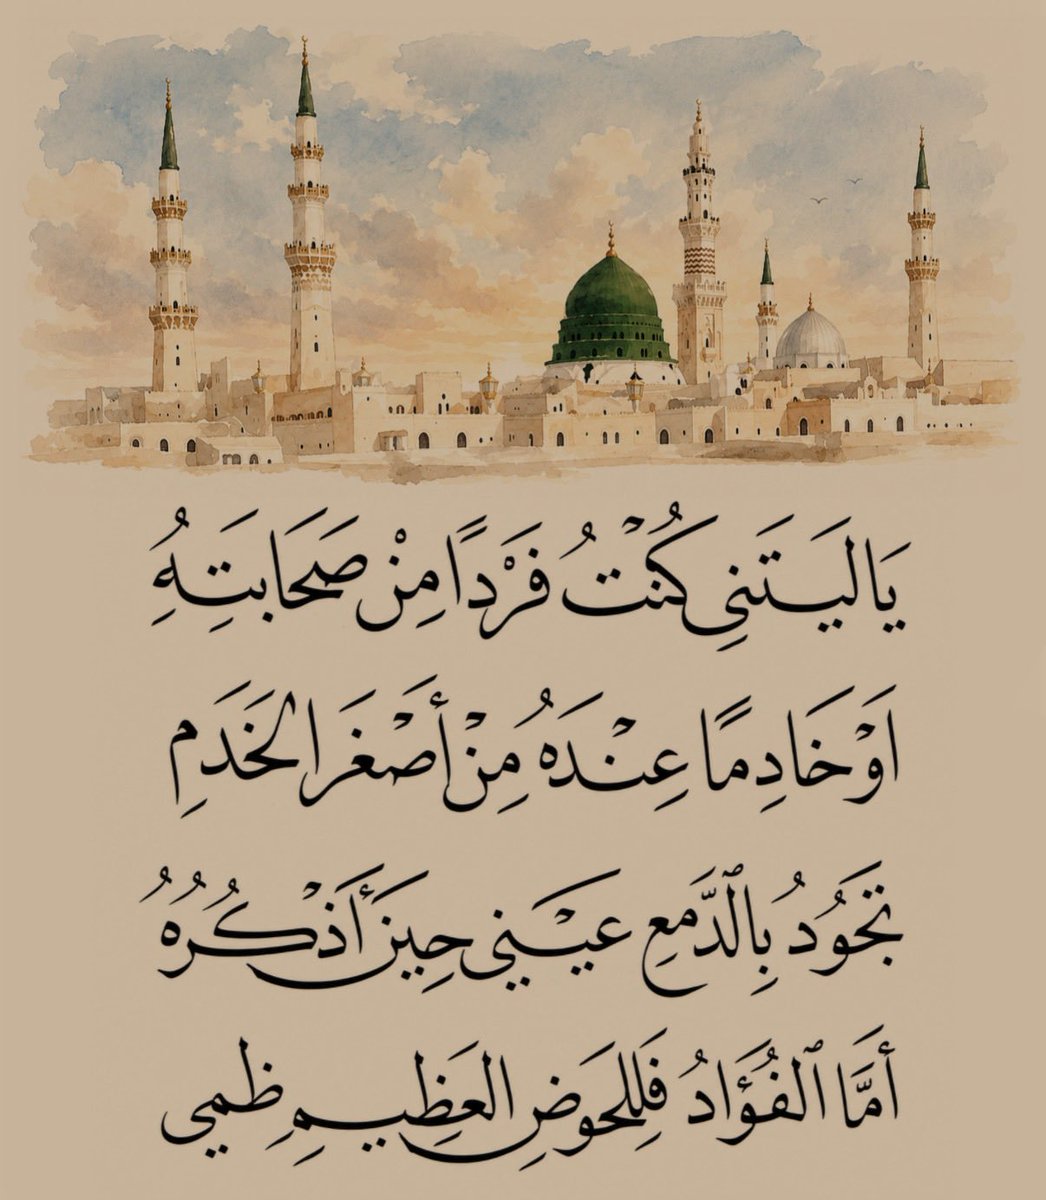 يَا لَيـتَنِي كُنْتُ فَرْدًا مِنْ صَحَابتِهُِ
اَوْ خَادِمًا عِنْدَهُ مِنْ أصْغَرَ الخَدَمِ
تَجُودُ بِٱلدَّمعِ عَيْني حِينَ أَذْكُرُهُ
أمَّا ٱلفُؤَادُ فَلِلحَوَضِ العَظِيمِ ظمي